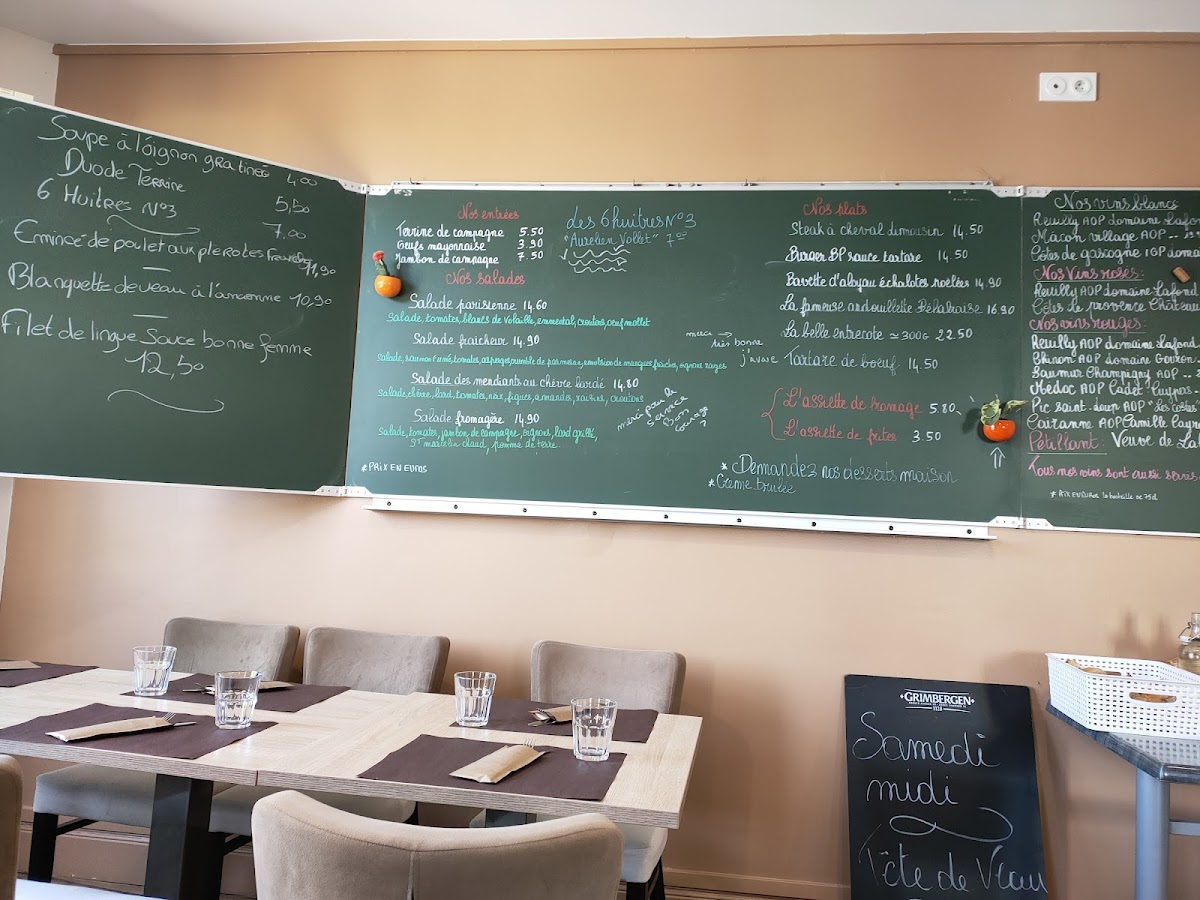 Soupe à l'óignon gratinée 4,00
Duo de Terrine 5,50
6 Huîtres N°3 7,00
Emincé de poulet aux pleurotes 11,90
Blanquette de veau à l'ancienne 10,90
Filet de lingue Sauce bonne femme
12,50
Nos entrées
Terrine de campagne 5.50
Oeufs mayonnaise 3.90
Jambon de campagne 7.50
Les 6 huitres N°3
"Aurelien Vollet" 7.00
Nos salades
Salade parisienne 14,60
Salade, tomates, blancs de volaille, emmental, croutons, oeuf mollet
Salade fraicheur 14.90
Salade, saumon fumé, tomates, asperges, crumble de parmesan, emulsion de mangues fraiche, oignons rouges
Salade des mendiants au chèvre lardé 14.80
Salade, chèvre, lard, tomates, noix, figues, amandes, raisins, croutons
Salade fromagère 14,90
Salade, tomates, jambon de campagne, oignons, lard grillé,
St marcelin chaud, pomme de terre.
* PRIX EN EUROS
merci →
très bonne
j'avase
merci pour le
service
Bon
courage
Nos plats
Steak à cheval limousin 14,50
Burger BP sauce tartare 14,50
Bavette d'aloyau échalotes poêlées 14,90
La fameuse andouillette Béhalaise 16.90
La belle entrecote ≃300g 22.50
Tartare de boeuf 14.50
L'assiette de fromage 5.80
L'assiette de frites 3.50
* Demandez nos desserts maison
* Crème brulée
Nos vins blancs
Reuilly AOP domaine Lafond
Mâcon village AOP
Côtes de gascogne IGP doma
Nos Vins rosés:
Reuilly AOP domaine Lafond
Côtes de provence Château
Nos vins rouges:
Reuilly AOP domaine Lafond
Chinon AOP domaine Gouron
Saumur Champigny AOP
Médoc AOP Cadet
Pic saint-loup AOP
Cairanne AOP Camille Cayra
Pétillant: Veuve de La
Tous nos vins sont aussi servis
* PRIX EN EUROS la bouteille de 75cl
GRIMBERGEN
Samedi
midi
Tête de Veau